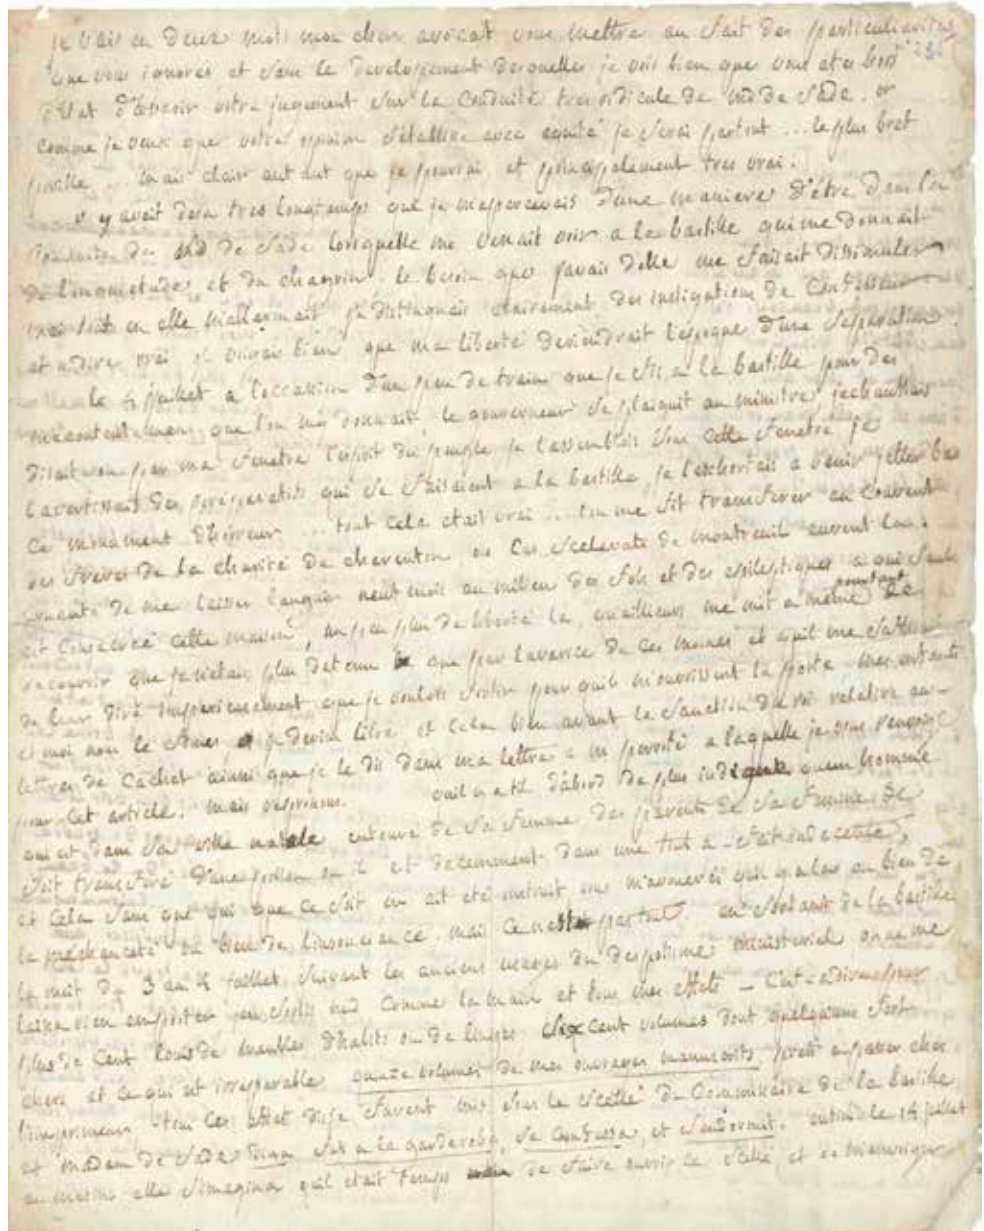 je vais en deux mots mon cher avocat vous mettre au fait des particularités
que vous ignores et sans le developement desquelles je vois bien que vous etes hors
d'Etat d'asseoir votre jugement sur la conduite tres ridicule de md de Sade. or
comme je veux que votre opinion s'etablisse avec equité je serai partout ... le plus bref
possible mais clair autant que je pourrai et principalement tres vrai.
il y avait deja tres longtemps que je m'appercevais d'une maniere d'être dans la
conduite de md de Sade lorsquelle me venait voir a la bastille qui me donnait
de l'inquietude et du chagrin. le besoin que j'avais d'elle me faisait dissimuler
mais tout en elle m'allarmait je distinguais clairement des instigations de confesseur
et a dire vrai je voyais bien que ma liberté deviendrait l'epoque d'une separation
le 4 juillet a l'occasion d'un peu de train que je fis a la bastille pour des
mecontentemens que l'on me donnait, le gouverneur se plaignit au ministre j'echauffais
disait-on par ma fenetre l'esprit du peuple je l'assemblais sous cette fenetre je
l'avertissais des preparatifs qui se faisaient a la bastille je l'exhortais a venir jetter bas
ce monument d'horreur ... tout cela etait vrai ... l'on me fit transferer au couvent
des freres de la charité de charenton ou ces scelerats de montreuil eurent la
cruauté de me laisser languir neuf mois au milieu des fols et des epileptiques a qui seuls
est consacrée cette maison, un peu plus de liberté la, me mit a meme pourtant de
decouvrir que je n'etais plus detenu que par l'avarice de ces moines et qu'il me suffisait
de leur dire imperieusement que je voulois sortir pour quils m'ouvrissent la porte mes enfants
et moi nous le fimes je devins libre et cela bien avant la sanction du roi relative aux
lettres de cachet ainsi que je le dis dans ma lettre a laquelle je vous renvoie
pour cet article. mais reprenons. quil y a t'il d'abord de plus indigne quun homme
qui est dans sa ville natale entouré de sa femme des parents de sa femme se
soit transferé d'une prison ou il est decemment dans une tout a fait indecente,
et cela sans que qui que ce soit en ait eté instruit, vous m'avoueréz quil y a la ou bien de
la mechanceté ou bien de l'insouciance. mais ce n'est pas tout. en sortant de la bastille
la nuit du 3 au 4 juillet, suivant les anciens usages du despotisme ministeriel on ne me
laissa rien emporter j'en sortis nud comme la main et tous mes effets – C'est-a-dire pour
plus de cent louis de meubles d'habits ou de linges six cent volumes dont quelquuns fort
chers et ce qui est irreparable quinze volumes de mes ouvrages manuscrits prets a passer chez
l'imprimeur tous ces effets dis-je furent mis sous le scellé du commissaire de la bastille
et madame de Sade dina fut a la garderobe, se confessa, et s'endormit. enfin le 14 juillet
au matin elle s'imagina quil etait temps de faire ouvrir le scellé et de m'envoyer